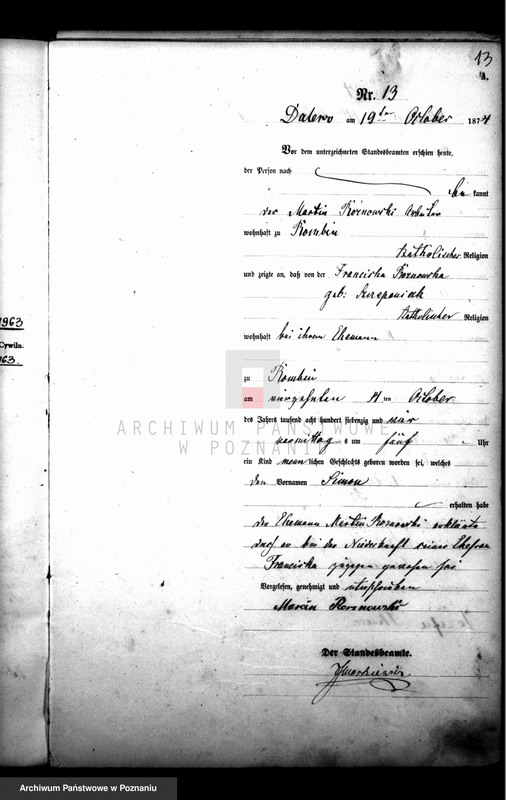 13
A.
Nr. 13
Dalewo am 19ten October 1874
Vor dem unterzeichneten Standesbeamten erschien heute,
der Person nach
bekannt
der Martin Roznowski Arbeiter
wohnhaft zu Rombin
katholischer Religion
und zeigte an, daß von der Franciska Roznowska
geb: Szczepaniak
katholischer Religion
wohnhaft bei ihrem Ehemann
1963
Cywiln.
963.
zu Rombin
am vierzehnten 14 ten October
des Jahrs tausend acht hundert siebenzig und vier
vormittags um fünf Uhr
ein Kind männlichen Geschlechts geboren worden sei, welches
den Vornamen Simon
erhalten habe
der Ehemann Martin Roznowski erklärte
daß er bei der Niederkunft seiner Ehefrau
Franciska zugegen gewesen sei
Vorgelesen, genehmigt und unterschrieben
Marcin Roznowski
Der Standesbeamte.
ARCHIWUM PAŃSTWOWE
W POZNANIU
Archiwum Państwowe w Poznaniu